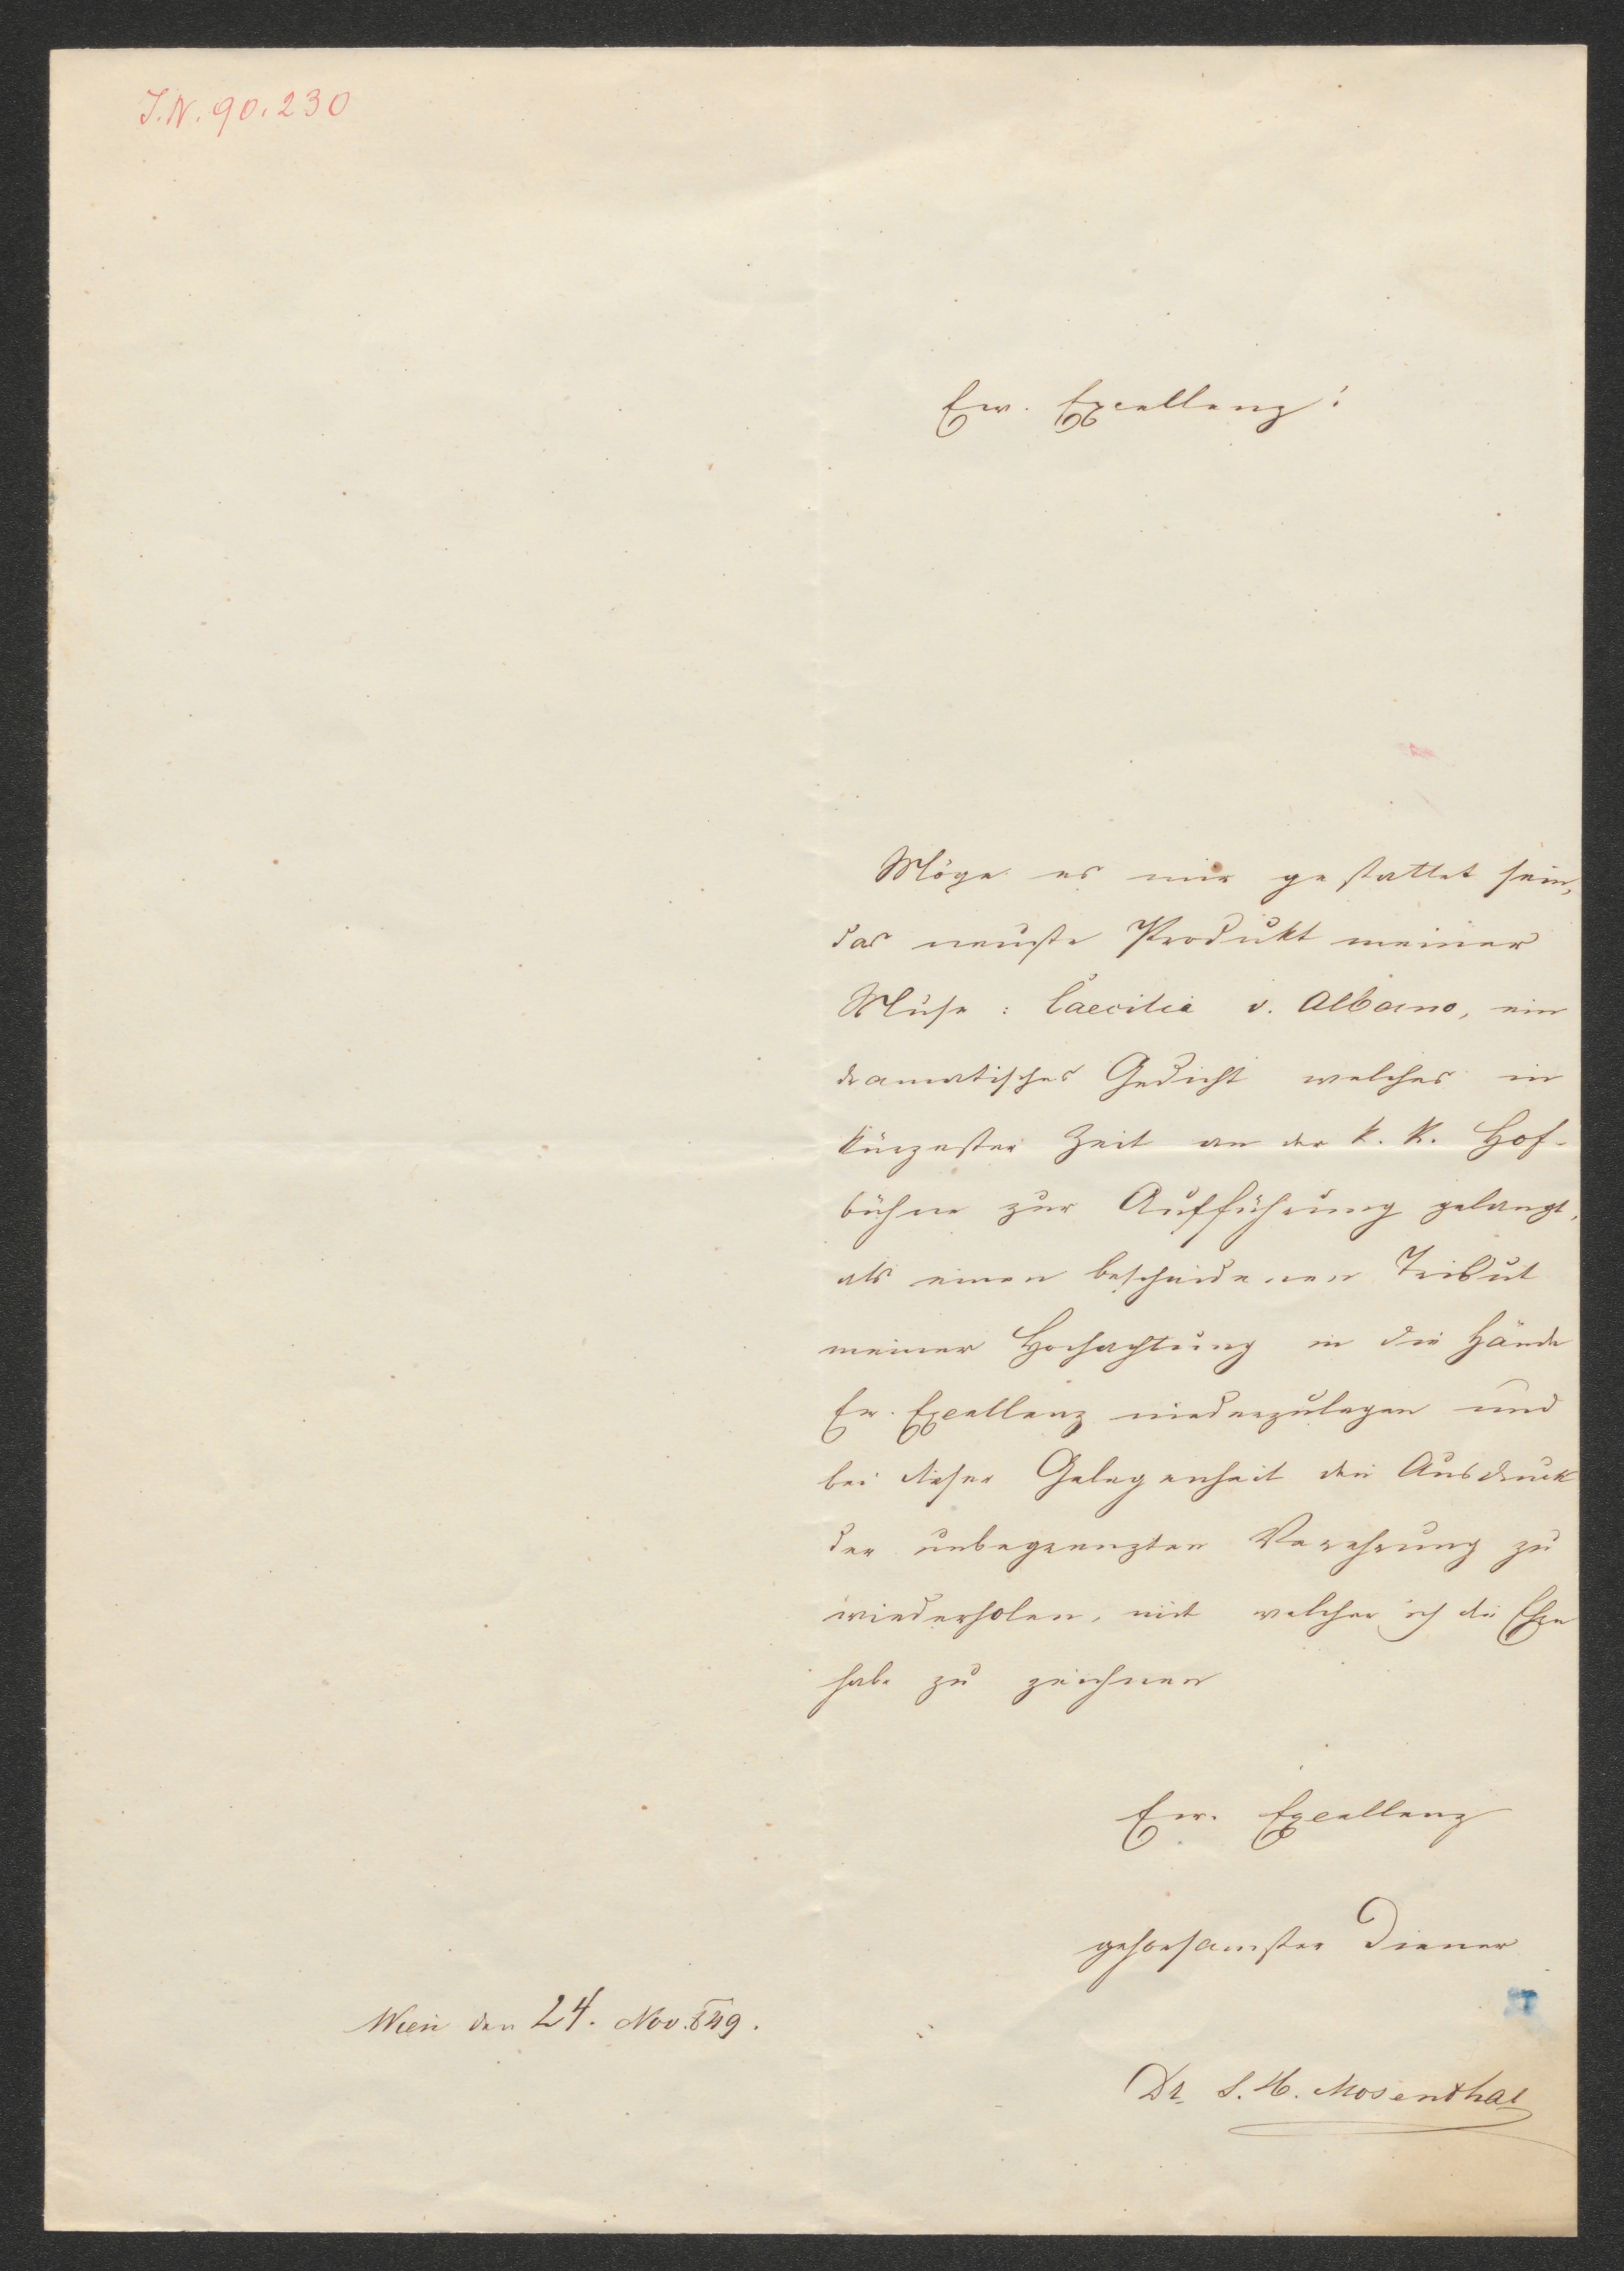 I.N. 90.230
Ew. Excellenz!
Möge es mir gestattet sein,
das neuste Produkt meiner
Muse: Caecilia v. Albano, ein
dramatisches Gedicht welches in
kürzester Zeit an der k. k. Hof-
bühne zur Aufführung gelangt,
als einen bescheidenen Tribut
meiner Hochachtung in die Hände
Ew. Excellenz niederzulegen und
bei dieser Gelegenheit den Ausdruck
der unbegrenzten Verehrung zu
wiederholen, mit welcher ich die Ehre
habe zu zeichnen
Ew. Excellenz
gehorsamster Diener
Wien den 24. Nov. 849.
Dr. S. H. Mosenthal